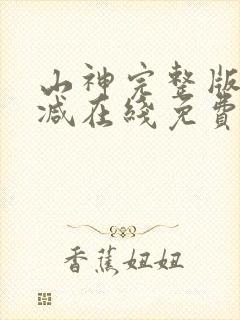 山神完整版
减在綫免費
香蕉妞妞